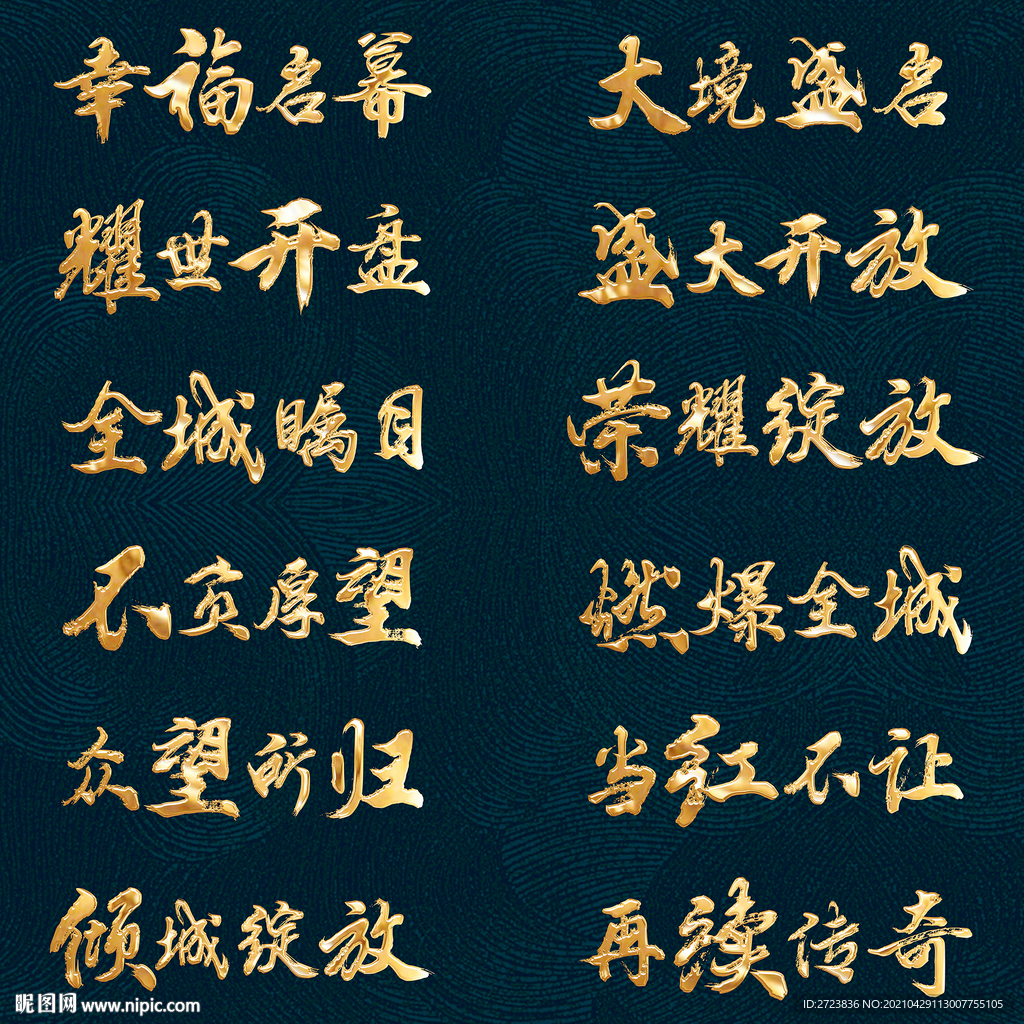 幸福启幕
大境盛启
耀世开盘
盛大开放
全城瞩目
荣耀绽放
不负厚望
燃爆全城
众望所归
当红不让
倾城绽放
再续传奇
昵图网 www.nipic.com
ID:2723836 NO:20210429113007755105